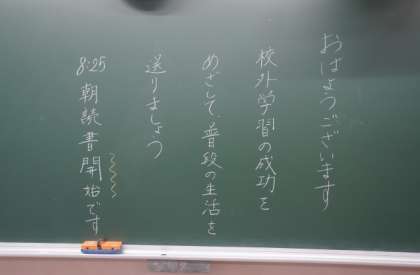 おはようございます
校外学習の成功を
めざして、普段の生活を
送りましょう
8:25 朝読書開始です